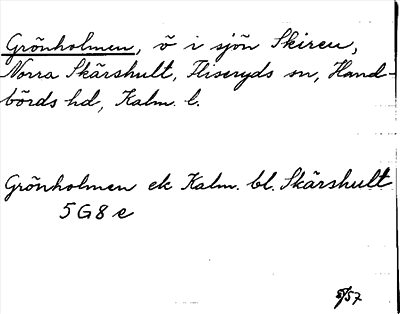 Grönholmen, ö i sjön Skiren,
Norra Skärshult, Fliseryds sn, Hand-
börds hd, Kalm. l.
Grönholmen ek Kalm. bl. Skärshult
5G8e
57